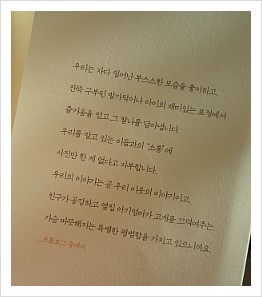 우리는 자다 일어난 부스스한 모습을 좋아하고,
잔뜩 구부린 발가락이나 아이의 재미있는 표정에서
즐거움을 얻고 그 찰나를 담아냅니다.
우리를 알고 있는 이들과의 '소통'에
사진만 한 게 없다고 자부합니다.
우리의 이야기는 곧 우리 이웃의 이야기이고,
친구가 공감하고 옆집 아기엄마가 고개를 끄덕여주는
가슴 따뜻해지는 특별한 평범함을 가지고 있으니까요.
_프롤로그 중에서